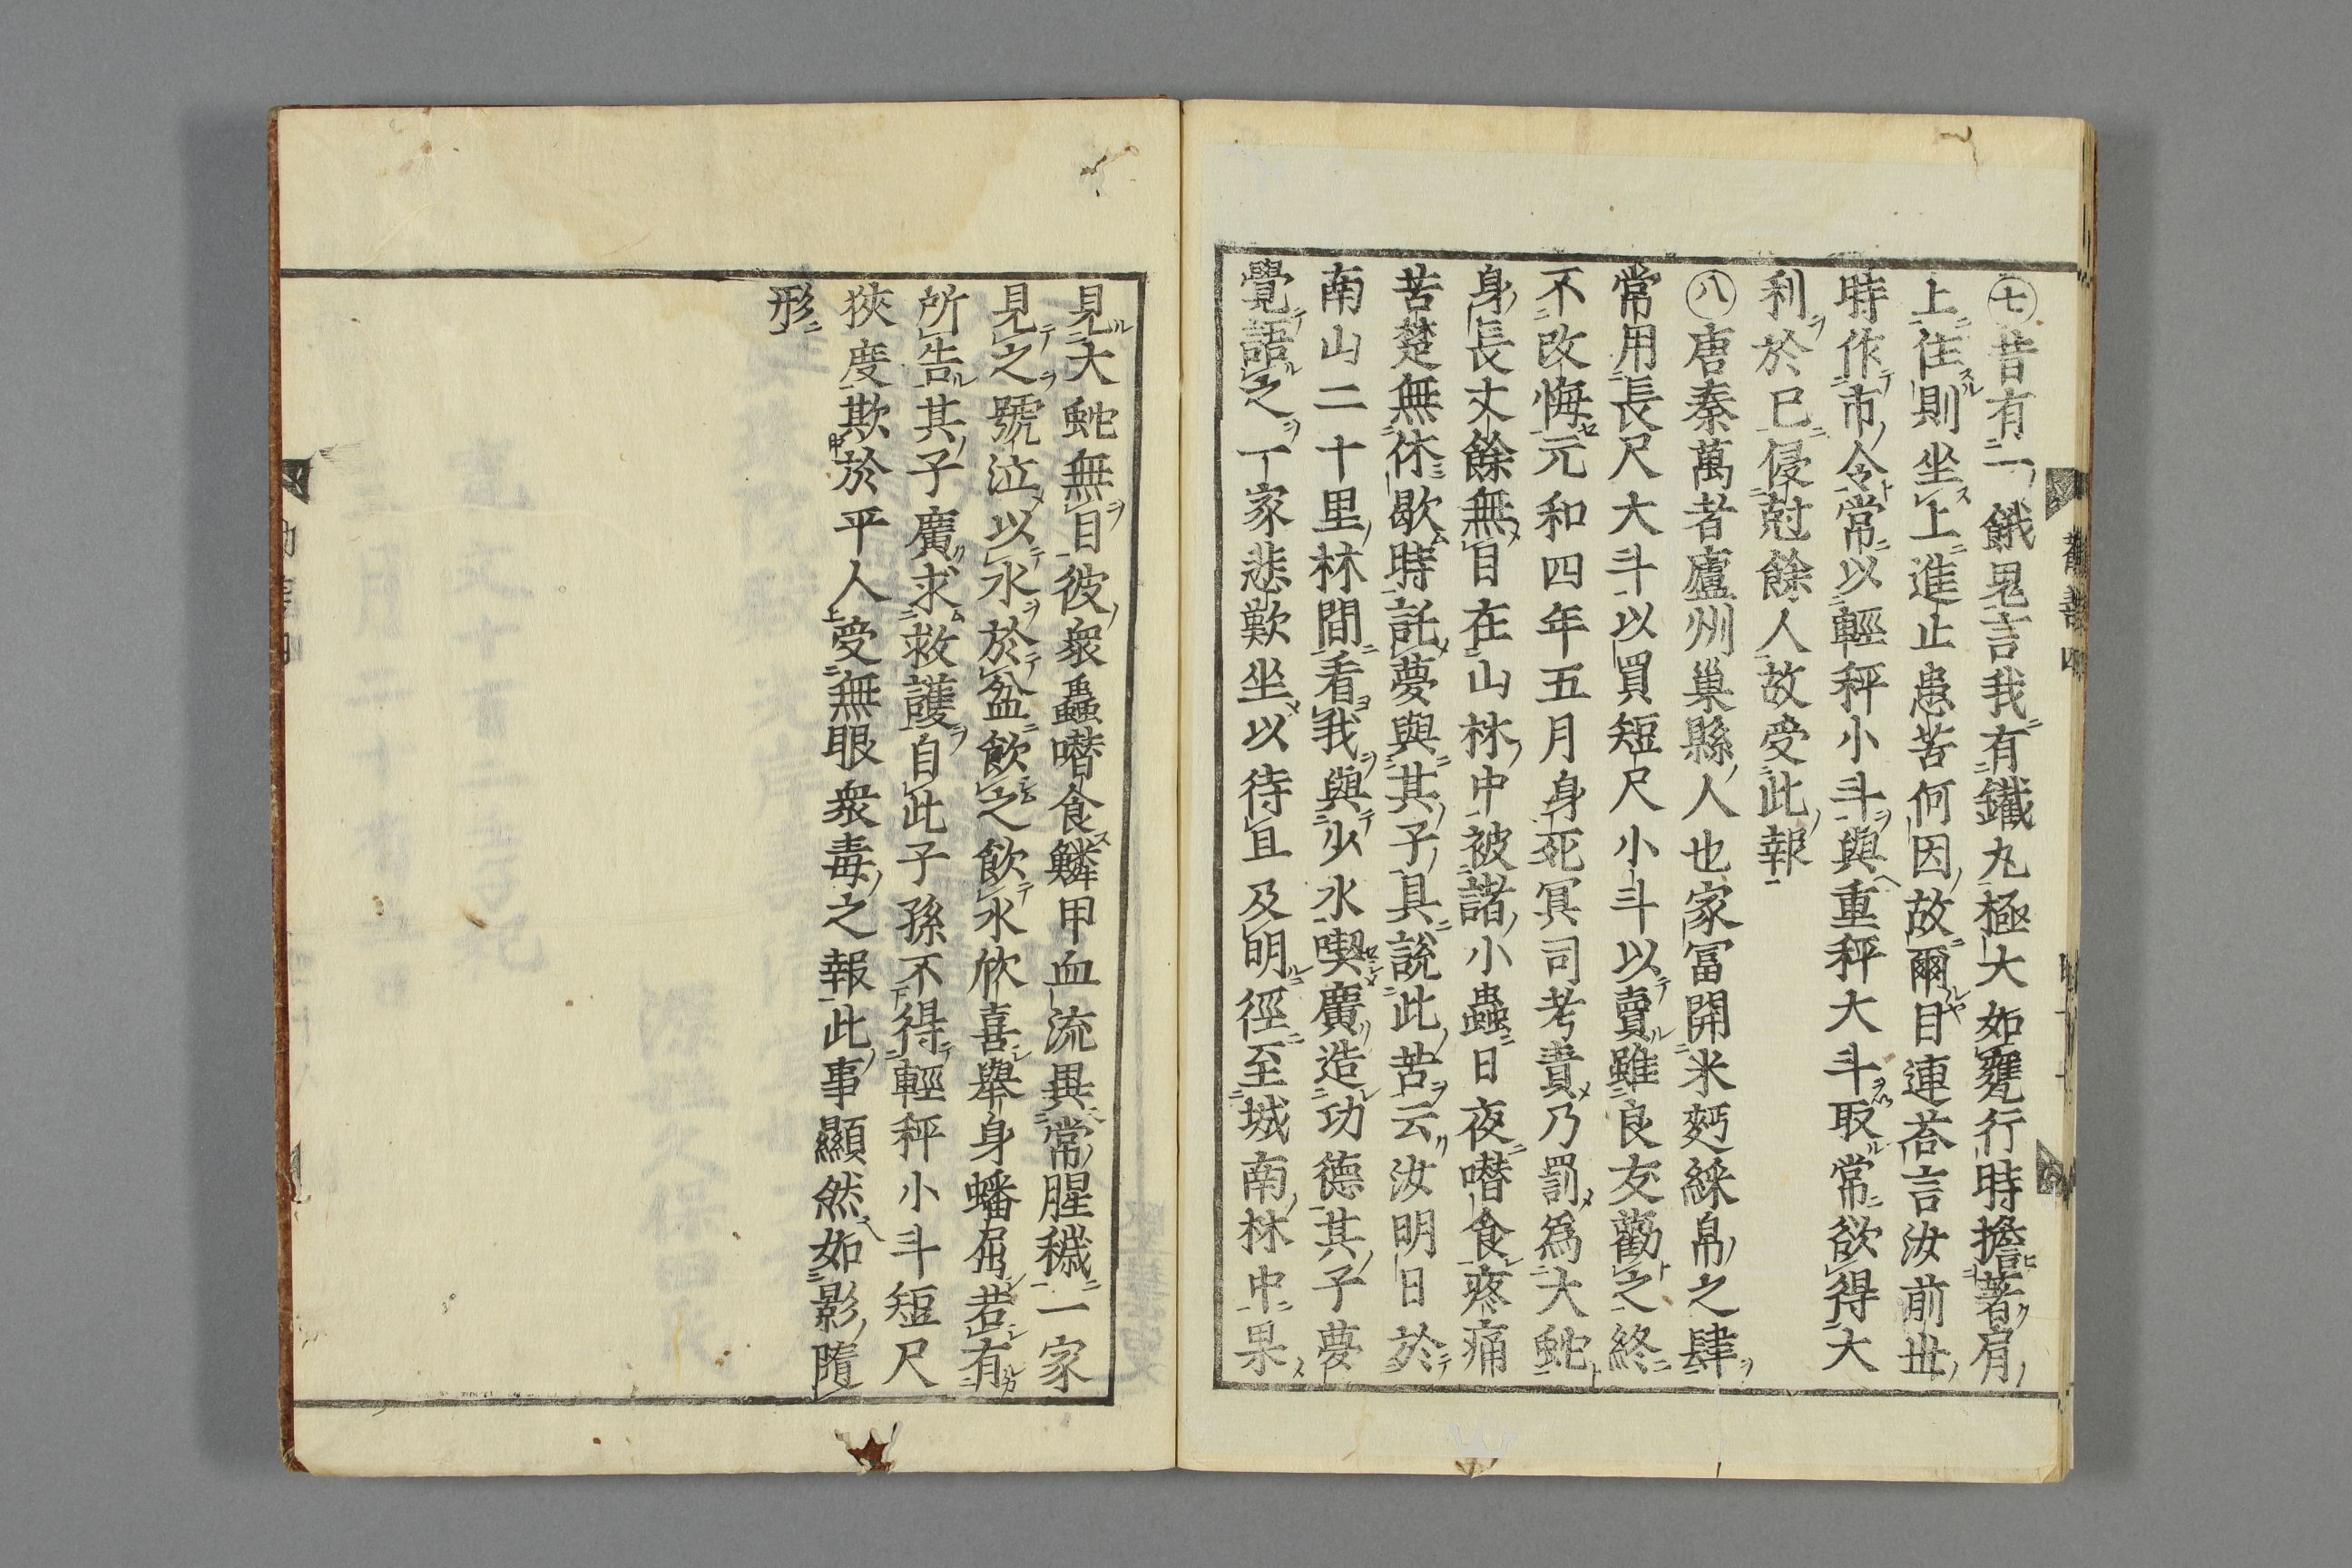 ㊆昔有一餓鬼言我有鐵丸極大如甕行時擔著肩
上住則坐上進止患苦何因故爾目連荅言汝前世
時作市令常以輕秤小斗與重秤大斗取常欲得大
利於己侵尅餘人故受此報
㊇唐秦萬者廬州巢縣人也家冨開米麪綵帛之肆
常用長尺大斗以買短尺小斗以賣雖良友勸之終
不改悔元和四年五月身死冥司考責乃罰爲大蛇
身長丈餘無目在山林中被諸小蟲日夜㗛食疼痛
苦楚無休歇時託夢與其子具說此苦云汝明日於
南山二十里林間看我與少水喫廣造功德其子夢
覺語之一家悲歎坐以待旦及明徑至城南林中果
見大蛇無目彼衆蟲㗛食鱗甲血流異常腥穢一家
見之號泣以水於盆飲之飲水欣喜舉身蟠屈若有
所告其子廣求救護自此子孫不得輕秤小斗短尺
狹度欺於平人受無眼衆毒之報此事顯然如影隨
形